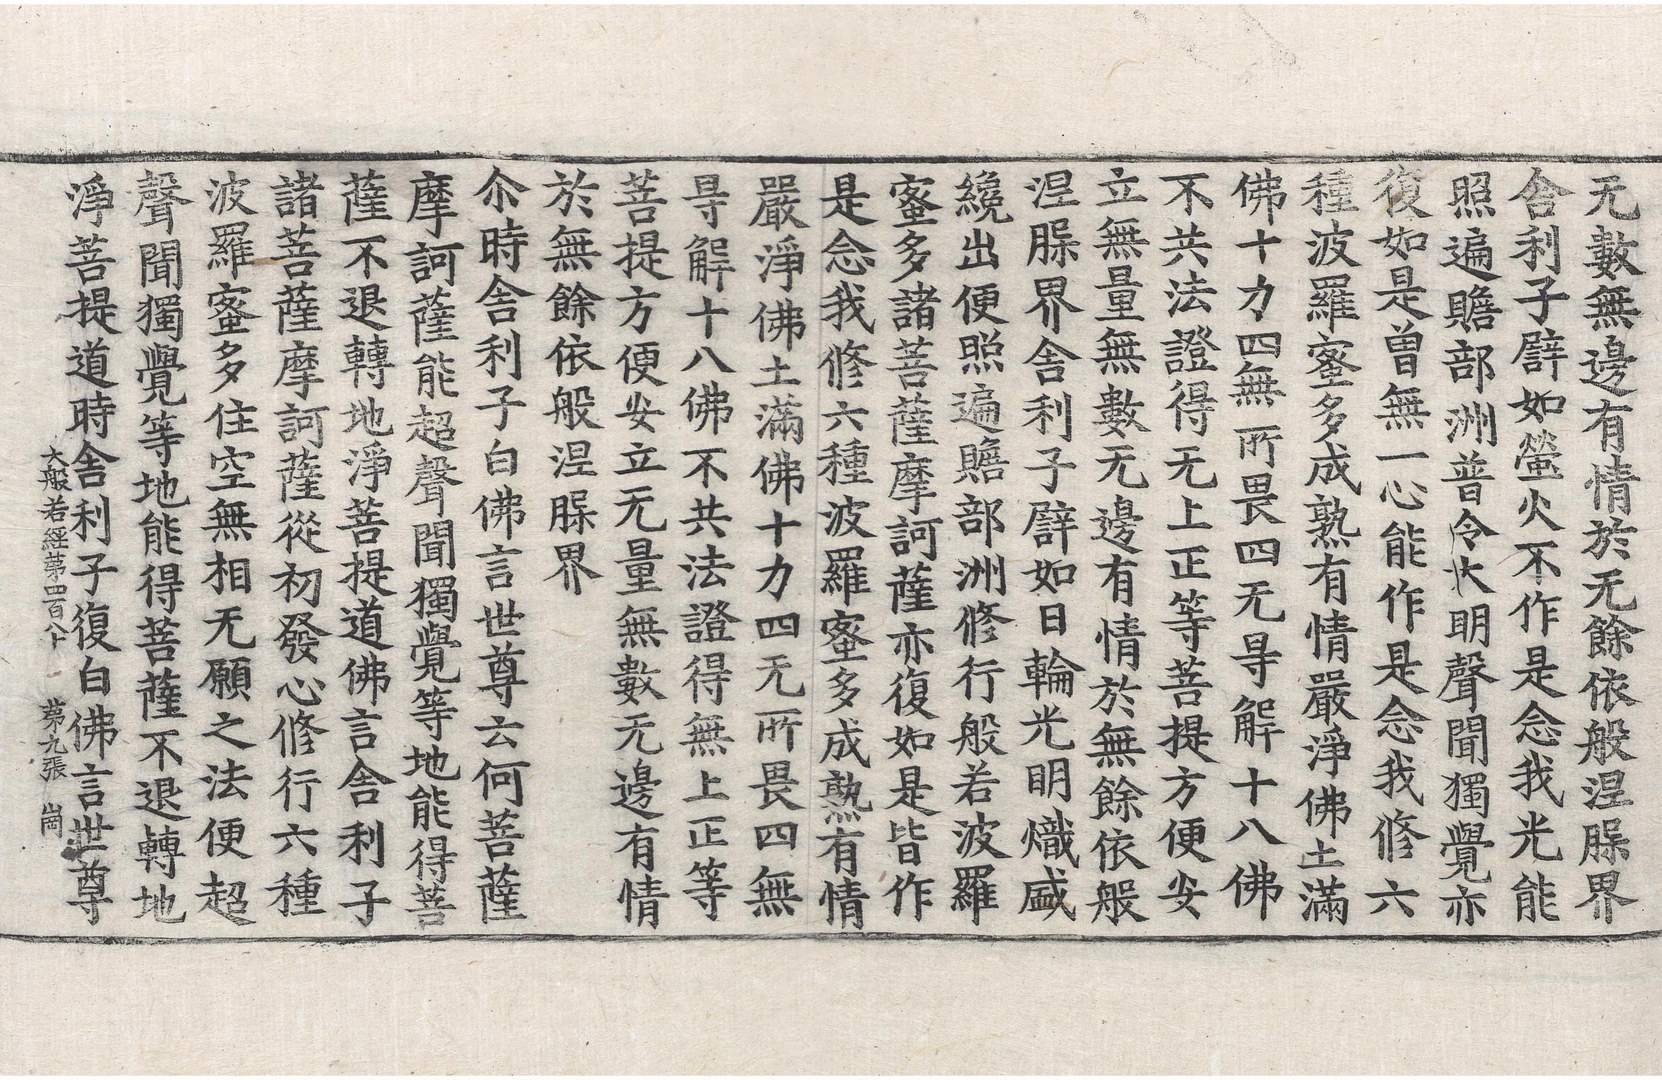 无數無邊有情於无餘依般涅脲界
舎利子譬如螢火不作是念我光能
照遍贍部洲普令大明聲聞獨覺亦
復如是曽無一心能作是念我修六
種波羅蜜多成熟有情嚴淨佛土滿
佛十力四無所畏四无㝵解十八佛
不共法證得无上正等菩提方便安
立無量無數无邊有情於無餘依般
涅脲界舎利子譬如日輪光明熾盛
纔出便照遍贍部洲修行般若波羅
蜜多諸菩薩摩訶薩亦復如是皆作
是念我修六種波羅蜜多成熟有情
嚴淨佛土滿佛十力四无所畏四無
㝵解十八佛不共法證得無上正等
菩提方便安立无量無數无邊有情
於無餘依般涅脲界
尒時舎利子白佛言世尊云何菩薩
摩訶薩能超聲聞獨覺等地能得菩
薩不退轉地淨菩提道佛言舎利子
諸菩薩摩訶薩從初發心修行六種
波羅蜜多住空無相无願之法便超
聲聞獨覺等地能得菩薩不退轉地
淨菩提道時舎利子復白佛言世尊
大般若經苐四百八十 苐九張 崗